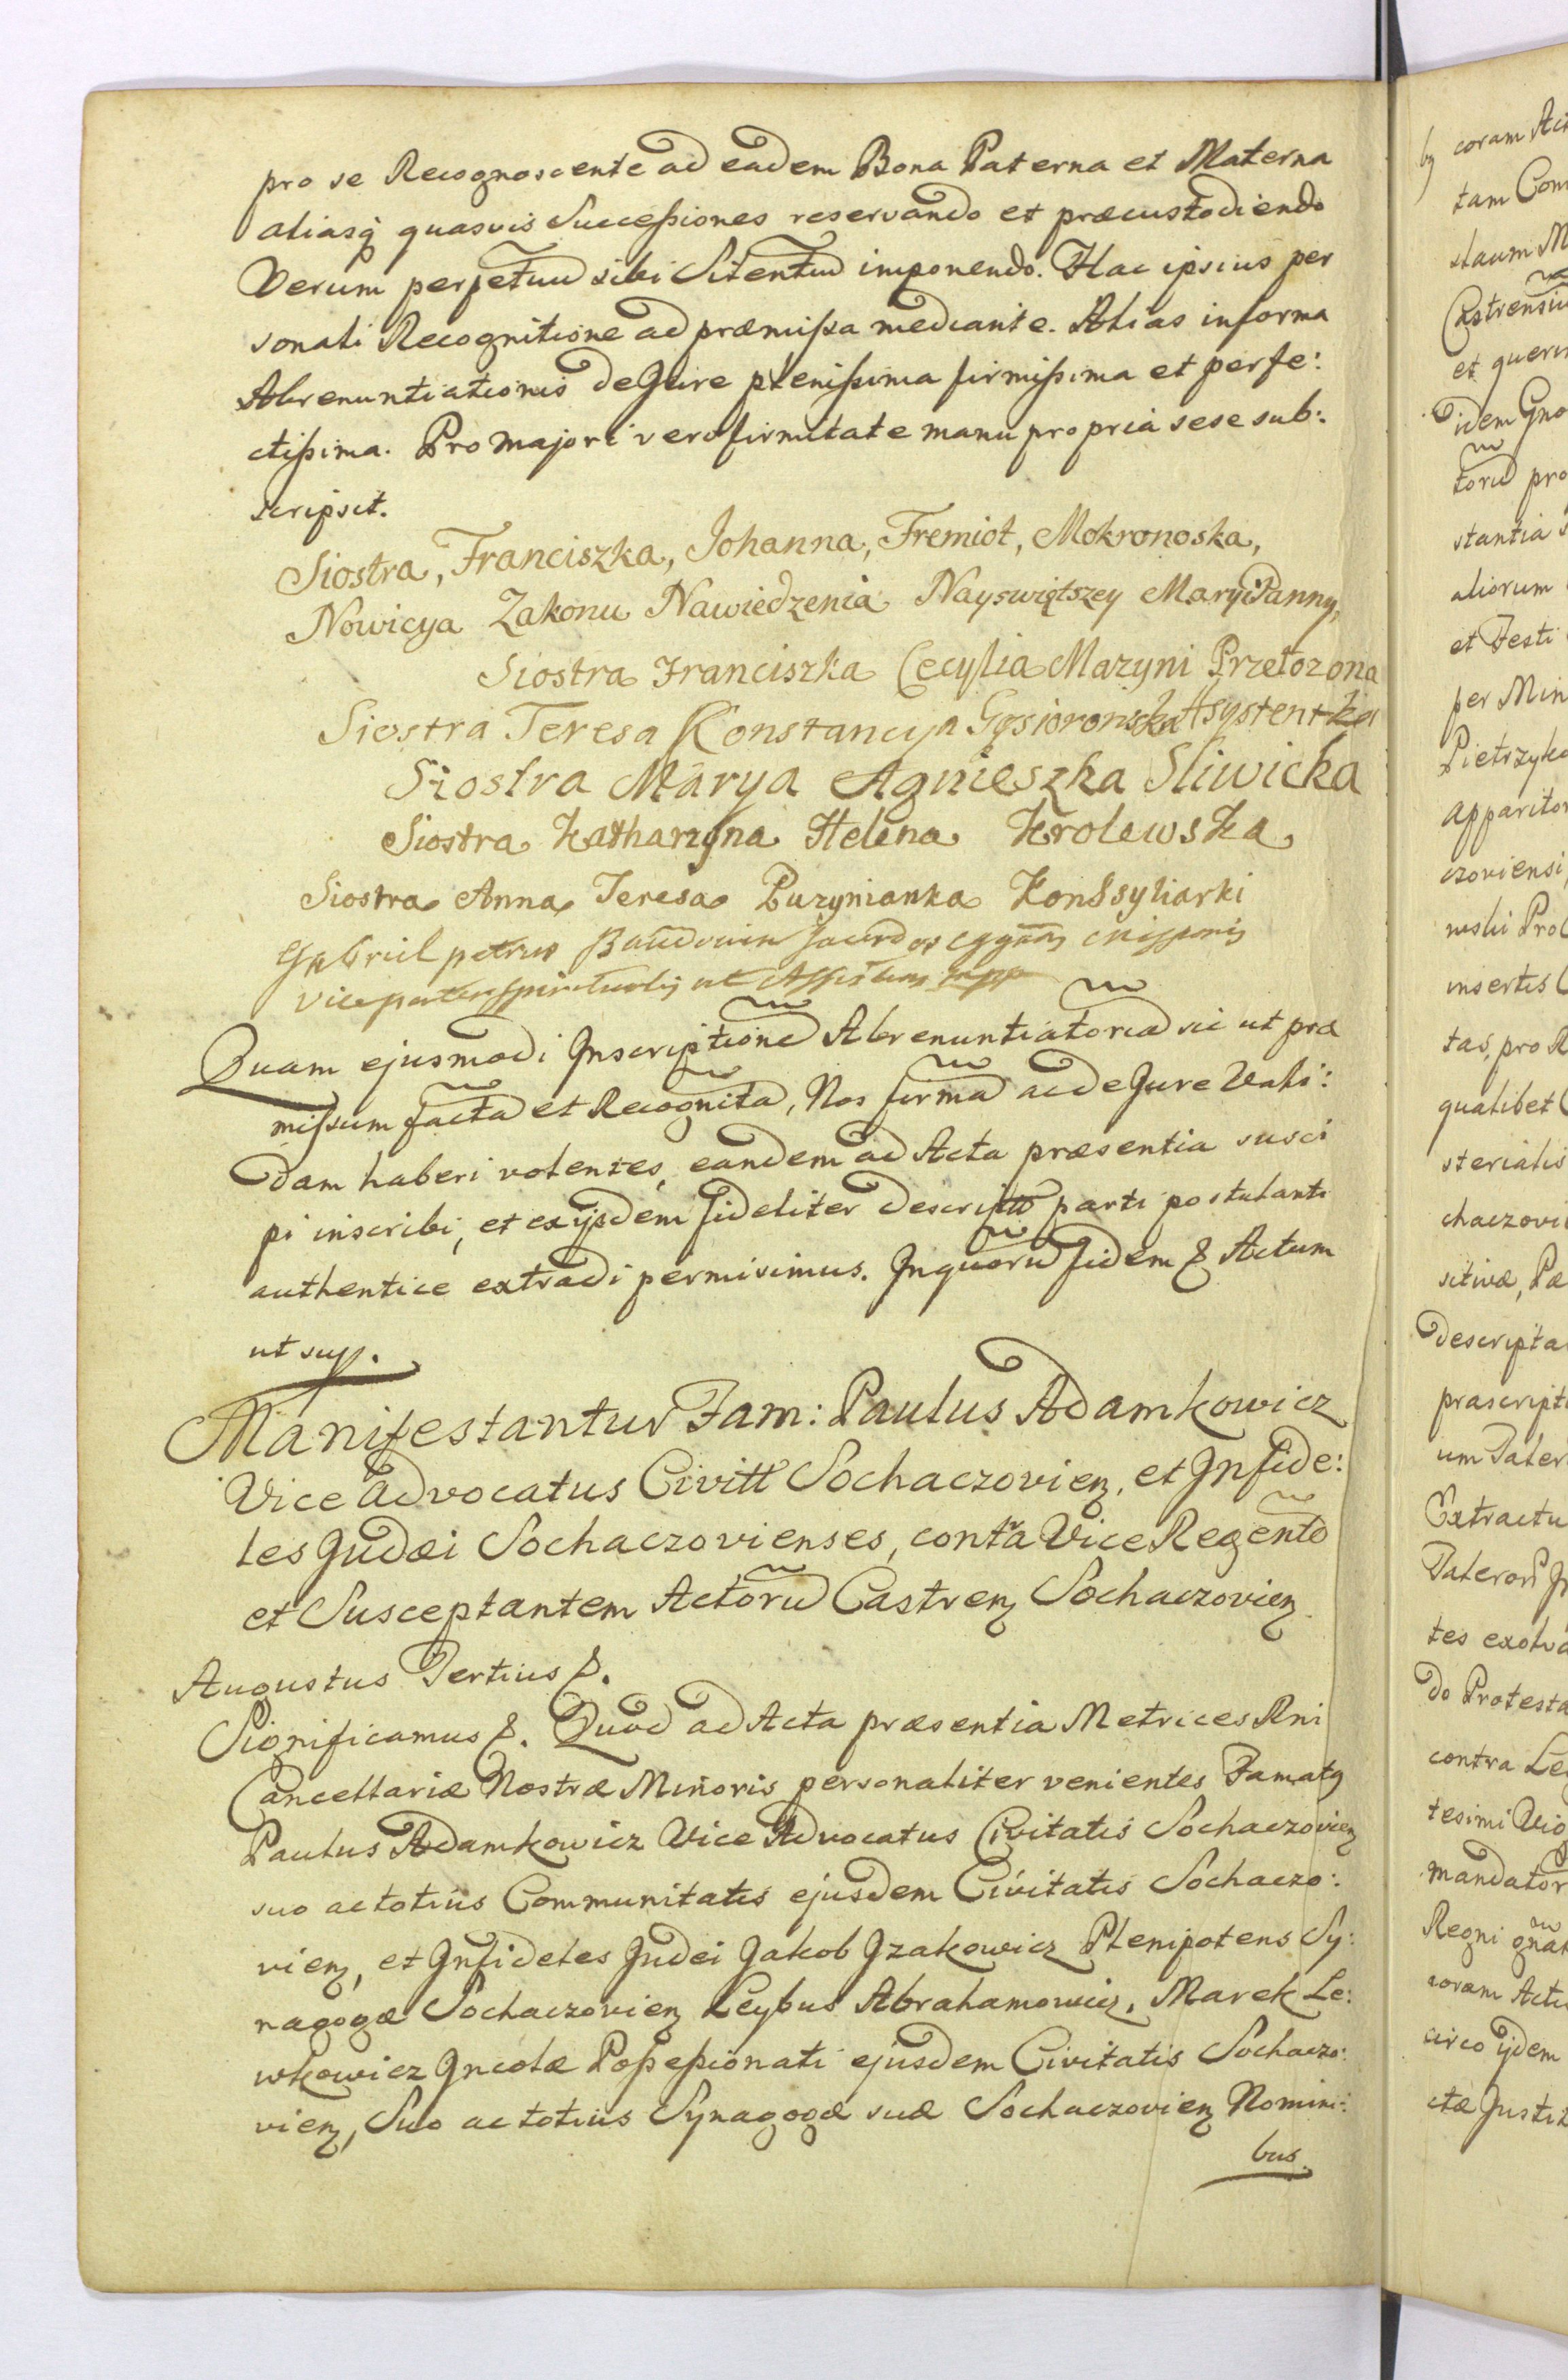 pro se Recognoscente ad eadem Bona Paterna et Materna
aliasq; quasvis Successiones reservando et præcustodiendo
Verum perpetuũ sibi Silentiũ imponendo. Hac ipsius per
sonali Recognitione ad præmissa mediante. Alias in forma
Abrenuntiationis de Jure plenissima firmissima et perfe:
ctissima. Pro majori vero firmitate manu propria sese sub:
scripsit.
Siostra, Franciszka, Johanna, Fremiot, Mokronoska,
Nowicya Zakonu Nawiedzenia Nayswiętszey Maryi Panny,
Siostra Franciszka Cecylia Mazyni Przełozona
Siostra Teresa Konstancya Gąsiorońska Asystentka
Siostra Marya Agnieszka Sliwicka
Siostra Katharzyna Helena Krolewska
Siostra Anna Teresa Puzynianka Konssyliarki
Gabriel petrus Baudouin Sacerdos Cggñis Missionis
vice pater spiritualis ut Assistens mpp
Quam ejusmodi Inscriptionẽ Abrenuntiatoriã sic ut præ
missum factã et Recognitã, Nos firmã ac de Jure Vali:
dam haberi volentes, eandem ad Acta præsentia susci
pi inscribi, et ex ijsdem fideliter descriptã parti postulanti
authentice extradi permisimus. In quorũ fidem &. Actum
ut supp.
Manifestantur Fam: Paulus Adamkowicz
Vice Advocatus Civitt Sochaczovien, et Infide:
les Judæi Sochaczovienses, contra Vice Regentẽ
et Susceptantem Actorũ Castren Sochaczovien
Augustus Tertius &.
Significamus &. Quod ad Acta præsentia Metrices Rni
Cancellariæ Nostræ Minoris personaliter venientes Famatq
Paulus Adamkowicz Vice Advocatus Civitatis Sochaczovien
suo ac totius Communitatis ejusdem Civitatis Sochaczo:
vien, et Infideles Judei Jakob Jzakowicz Plenipotens Sy:
nagogæ Sochaczovien Leybus Abrahamowicz, Marek Le:
wkowicz Jncolæ Possessionati ejusdem Civitatis Sochaczo:
vien, Suo ac totius Synagogæ suæ Sochaczovien Nomini:
bus.
coram
tam
et
idem
torũ pro
stantia
aliorum
et Testi
per Min
Pietrzyko
apparitor
czoviensi
insertis
tas, pro
qualibet
sterialis
chaczovi
sitivæ,
descripta
præscript
Extractu
do Protesta
contra
tesimi
mandator
Regni
coram Acti
circo ijdem
ctæ Justit